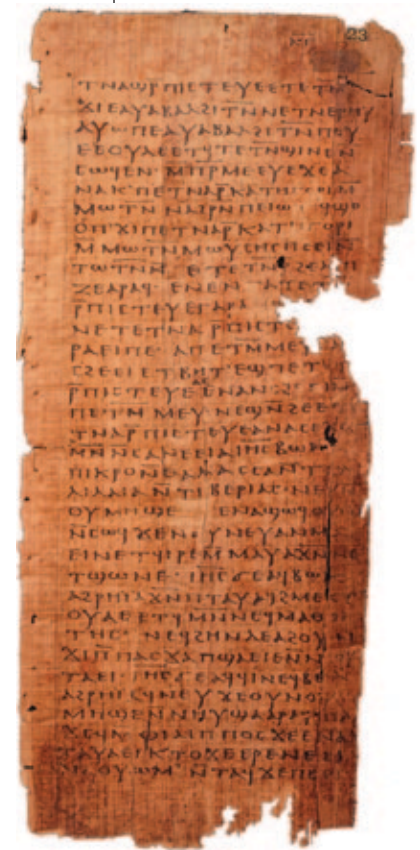 23
ⲧⲛⲁϣⲣⲡⲓⲥⲧⲉⲩⲉ ⲉⲧⲉⲧⲛ̄
ϫⲓ ⲉⲁⲩ ⲁⲃⲁⲗ ϩⲓⲧⲛ̄ ⲛⲉⲧⲛⲉⲣⲏⲩ
ⲁⲩⲱ ⲡⲉⲁⲩ ⲁⲃⲁⲗ ϩⲓⲧⲛ̄ ⲡⲟⲩ
ⲉⲉⲟⲩⲁⲉⲉⲧϥ ⲧⲉⲧⲛ̄ϣⲓⲛⲉ ⲛ
ⲥⲱϥ ⲉⲛ ⲙ̄ⲡⲣ̄ⲙⲉⲩⲉ ϫⲉ ⲁ
ⲛⲁⲕ ⲡⲉⲧⲛⲁⲣ̄ⲕⲁⲧⲏⲅ
ⲙⲱⲧⲛ̄ ⲛⲛⲁϩⲣⲛ̄ ⲡⲉⲓⲱⲧ ϥϣⲟ
ⲟⲡ ϫⲓ ⲡⲉⲧⲛⲁⲣⲕⲁⲧⲏⲅⲟⲣⲓ
ⲙⲙⲱⲧⲛ̄ ⲙⲱⲩⲥⲏⲥ ⲡⲉⲉⲓ ⲛ̄
ⲧⲱⲧⲛ̄ ⲉⲧⲉⲧⲛ̄
ⲍⲉ ⲁⲣⲁϥ ⲉⲛⲉⲛ ⲁⲧⲉⲧ
ⲣ̄ⲡⲓⲥⲧⲉⲩⲉ ⲅⲁⲣ ⲁ
ⲛⲉⲧⲉⲧⲛⲁⲣ̄ⲡⲓⲥⲧⲉ
ⲣⲁⲉⲓ ⲡⲉ ⲁⲡⲉⲧⲙ̄ⲙⲉⲩ
ⲥϩⲉⲉⲓ ⲉⲧⲃⲏⲧ ⲉϣⲡⲉ ⲧⲉⲧ
ⲣ̄ⲡⲓⲥⲧⲉⲩⲉ ⲇⲉ ⲉⲛ ⲁⲛⲥϩⲉⲉⲓ
ⲡⲉⲧⲙ̄ⲙⲉⲩ ⲛⲉϣ ⲛ̄ϩⲉ ⲉⲧⲉ
ⲧⲛⲁⲣ̄ⲡⲓⲥⲧⲉⲩⲉ ⲁⲛⲁⲥⲉ
ⲙⲛ̄ⲛⲥⲁ ⲛⲉⲉⲓ ⲁⲓⲏ̄ⲥ̄ ⲃⲱⲕ
ⲡⲓⲕⲣⲟ ⲛ̄ⲑⲁⲗⲁⲥⲥⲁ ⲛⲧ
ⲗⲓⲗⲁⲓⲁ ⲛ̄ⲧⲓⲃⲉⲣⲓⲁⲥ ⲛⲉ
ⲟⲩⲙⲏϣⲉ ⲉⲛⲁϣⲱϥ
ⲛ̄ⲥⲱϥ ϫⲉ ⲛⲟⲩⲛⲉⲩ ⲁⲛⲙ
ⲉⲓⲛ ⲉⲧϥⲓⲣⲉ ⲙ̄ⲙⲁⲩ ⲁϫⲛ̄ ⲛⲉ
ⲧϣⲱⲛⲉ ⲓⲏ̄ⲥ̄ ϭⲉ ⲁϥⲃⲱ
ⲁϩⲣⲏⲓ ⲁϫⲛ̄ ⲡⲧⲁⲩ ⲁϥϩⲙⲉⲥ
ⲟⲩⲁⲉⲉⲧϥ ⲙⲛ̄ ⲛⲉϥⲙⲁⲑⲏ
ⲧⲏⲥ ⲛⲉϥϩⲏⲛ ⲇⲉ ⲁϩⲟⲩⲛ
ϫⲓ ⲡⲡⲁⲥⲭⲁ ⲡϣⲁⲉⲓⲉ ⲛ̄ⲛ
ⲧⲁⲉⲓ ⲓⲏ̄ⲥ̄ ϭⲉ ⲁϥϥⲓ ⲛⲉϥⲃⲉ
ⲁϩⲣⲏⲓ ⲁϥⲛⲉⲩ ϫⲉ ⲟⲩⲛⲟϭ
ⲙⲙⲏϣⲉ ⲛⲛⲏⲩ ϣⲁⲣⲁϥ ⲡⲁ
ϫⲉϥ ⲁⲫⲓⲗⲓⲡⲡⲟⲥ ϫⲉ ⲉⲛⲁ
ⲧⲁⲩ ⲁⲉⲓⲕ ⲧⲟ ϫⲉⲉⲣⲉ ⲛⲉⲉⲓ
ⲟⲩⲱⲙ ⲛ̄ⲧⲁϥϫⲉ ⲡⲉ